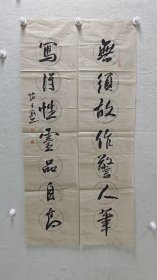 無須故作驚人筆
寫得性靈品自高